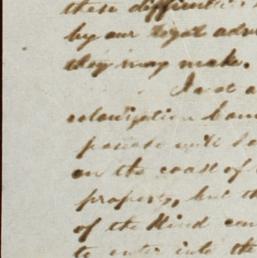 these difficult
by our legal adv
they may make.
Just a
colonization
will
on the coast of
property, but th
of the kind con
to enter into the